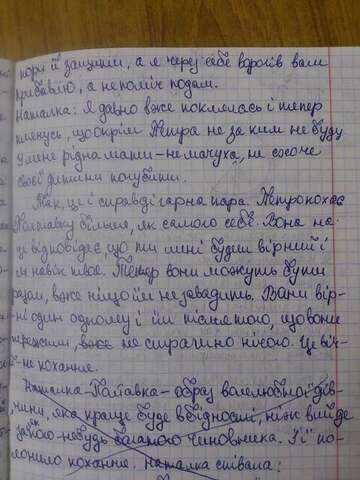 порі й защити, а я через себе ворогів вам
прибавлю, а не поміч подам.
Наталка: Я давно вже поклялась і тепер
клянусь, що окрім Петра не за ким не буду
У мене рідна мати – не мачуха, не схоче
своєї дитини погубити.
Так, це і справді гарна пара. Петро кохає
Полтавку більше, як самого себе. Вона на
це відповідає, що ти мені будеш вірний і
я навік твоя. Тепер вони можуть бути
разом, вже ніщо їм не завадить. Вони вір-
ні один одному і їм після того, що вони
пережили, вже не страшно нічого. Це
не кохання.
Наталка-Полтавка – образ волелюбної дів-
чини, яка краще буде в бідності, ніж вийде
за якого-небудь багатого чиновника. Її по-
лонило кохання. Наталка співала: